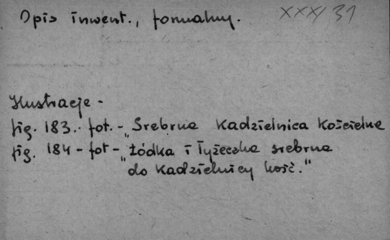 Opis inwent., formalny. XXX/31
Ilustracje -
fig. 183. fot. - „Srebrna Kadzielnica Kościelna
fig. 184 - fot - „Łódka i łyżeczka srebrna
do Kadzielnicy kość."